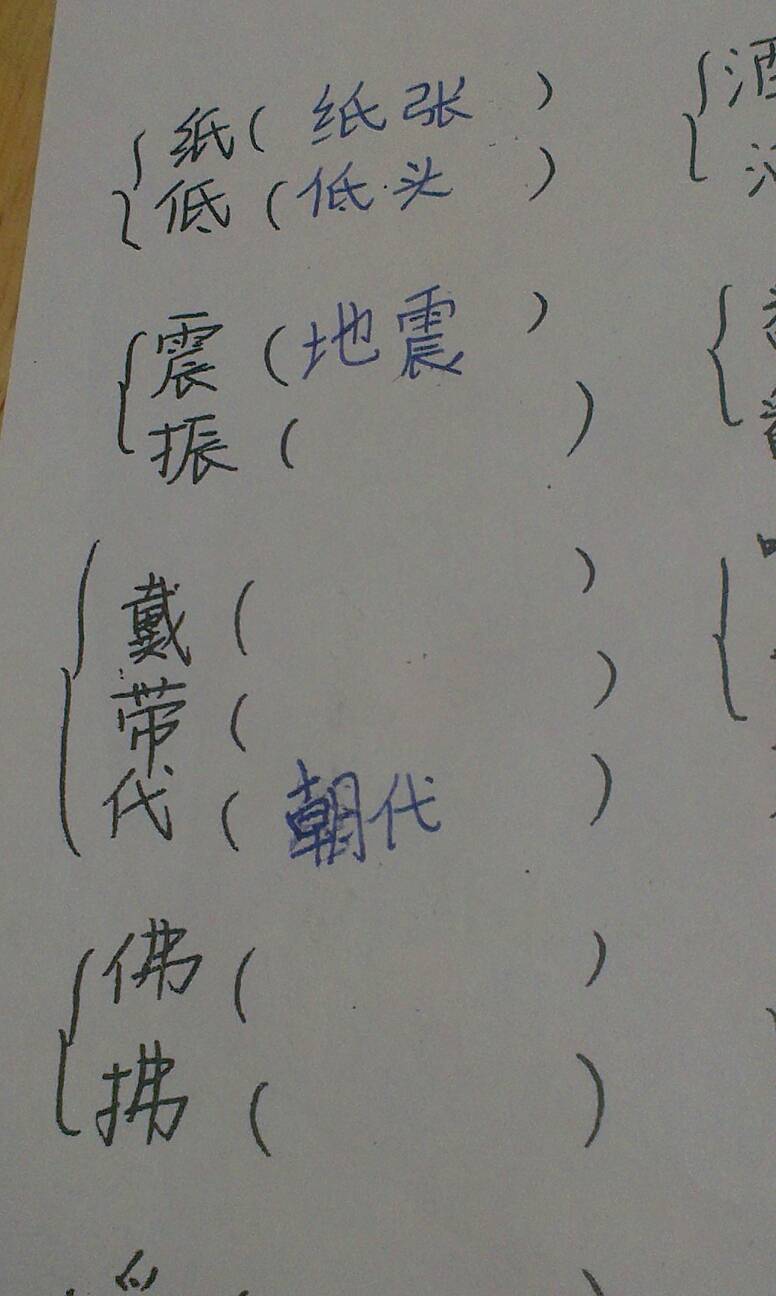 纸(纸张)
低(低头)
震(地震)
振( )
戴( )
带( )
代(朝代)
佛( )
拂( )
酒